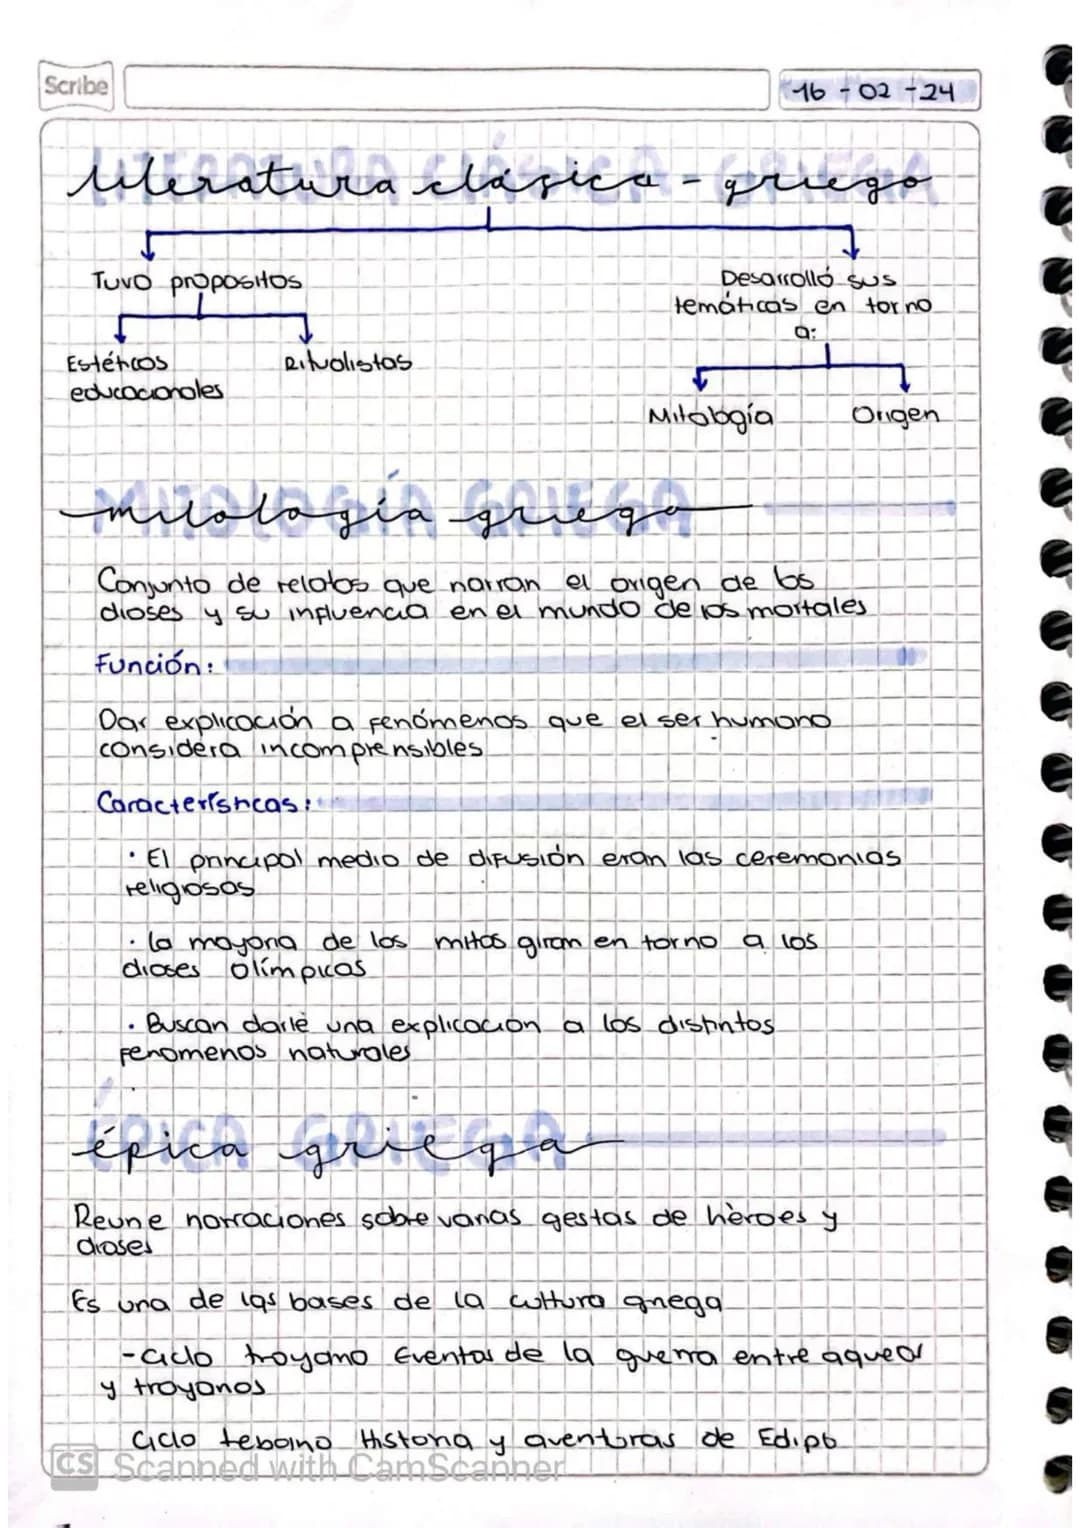 Scribe
16-02-24
Literatura clásica - griega
Tuvo propositos
Desarrolló sus
temáticas en torno
a:
Estéticos
educacionales
Ritualistas
Mitología
Origen
Mitología griega
Conjunto de relatos que narran el origen de los
dioses y su influencia en el mundo de los mortales
Función:
Dar explicación a fenómenos que el ser humano
considera incomprensibles
Características:
· El principal medio de difusión eran las ceremonias
religiosas
· La mayoria de los mitos giran en torno a los
dioses olímpicos
· Buscan darle una explicacion a los distintos
fenomenos naturales
épica griega
Reune narraciones sobre varias gestas de hèroes y
dioses
Es una de las bases de la cultura griega
-Ciclo troyano Eventos de la guerra entre aqueos
y troyanos
Ciclo tebaino Historia y aventuras de Edipo
CS Scanned with CamScanner